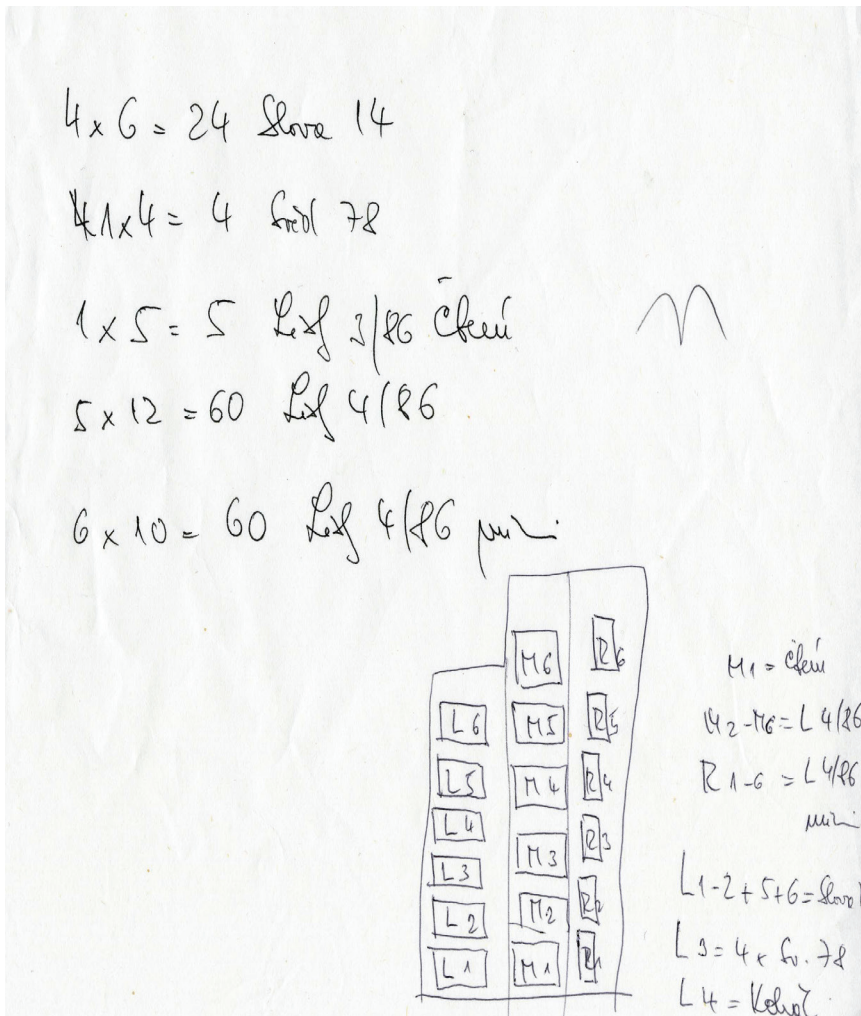 4 x 6 = 24 Slova 14
1x4 = 4 78
1 x 5 = 5 3/86 čtení
5 x 12 = 60 4/86
6 x 10 = 60 4/86 mini
M6 R6
L6 M5 R5
L5 M4 R4
L4 M3 R3
L3 M2 R2
L2 M1 R1
L1
M1 = čtení
M2-M6 = L 4/86
R1-6 = L 4/86
mini
L1-2+5+6 = Slovo
L3 = 4x Sv. 78
L4 =